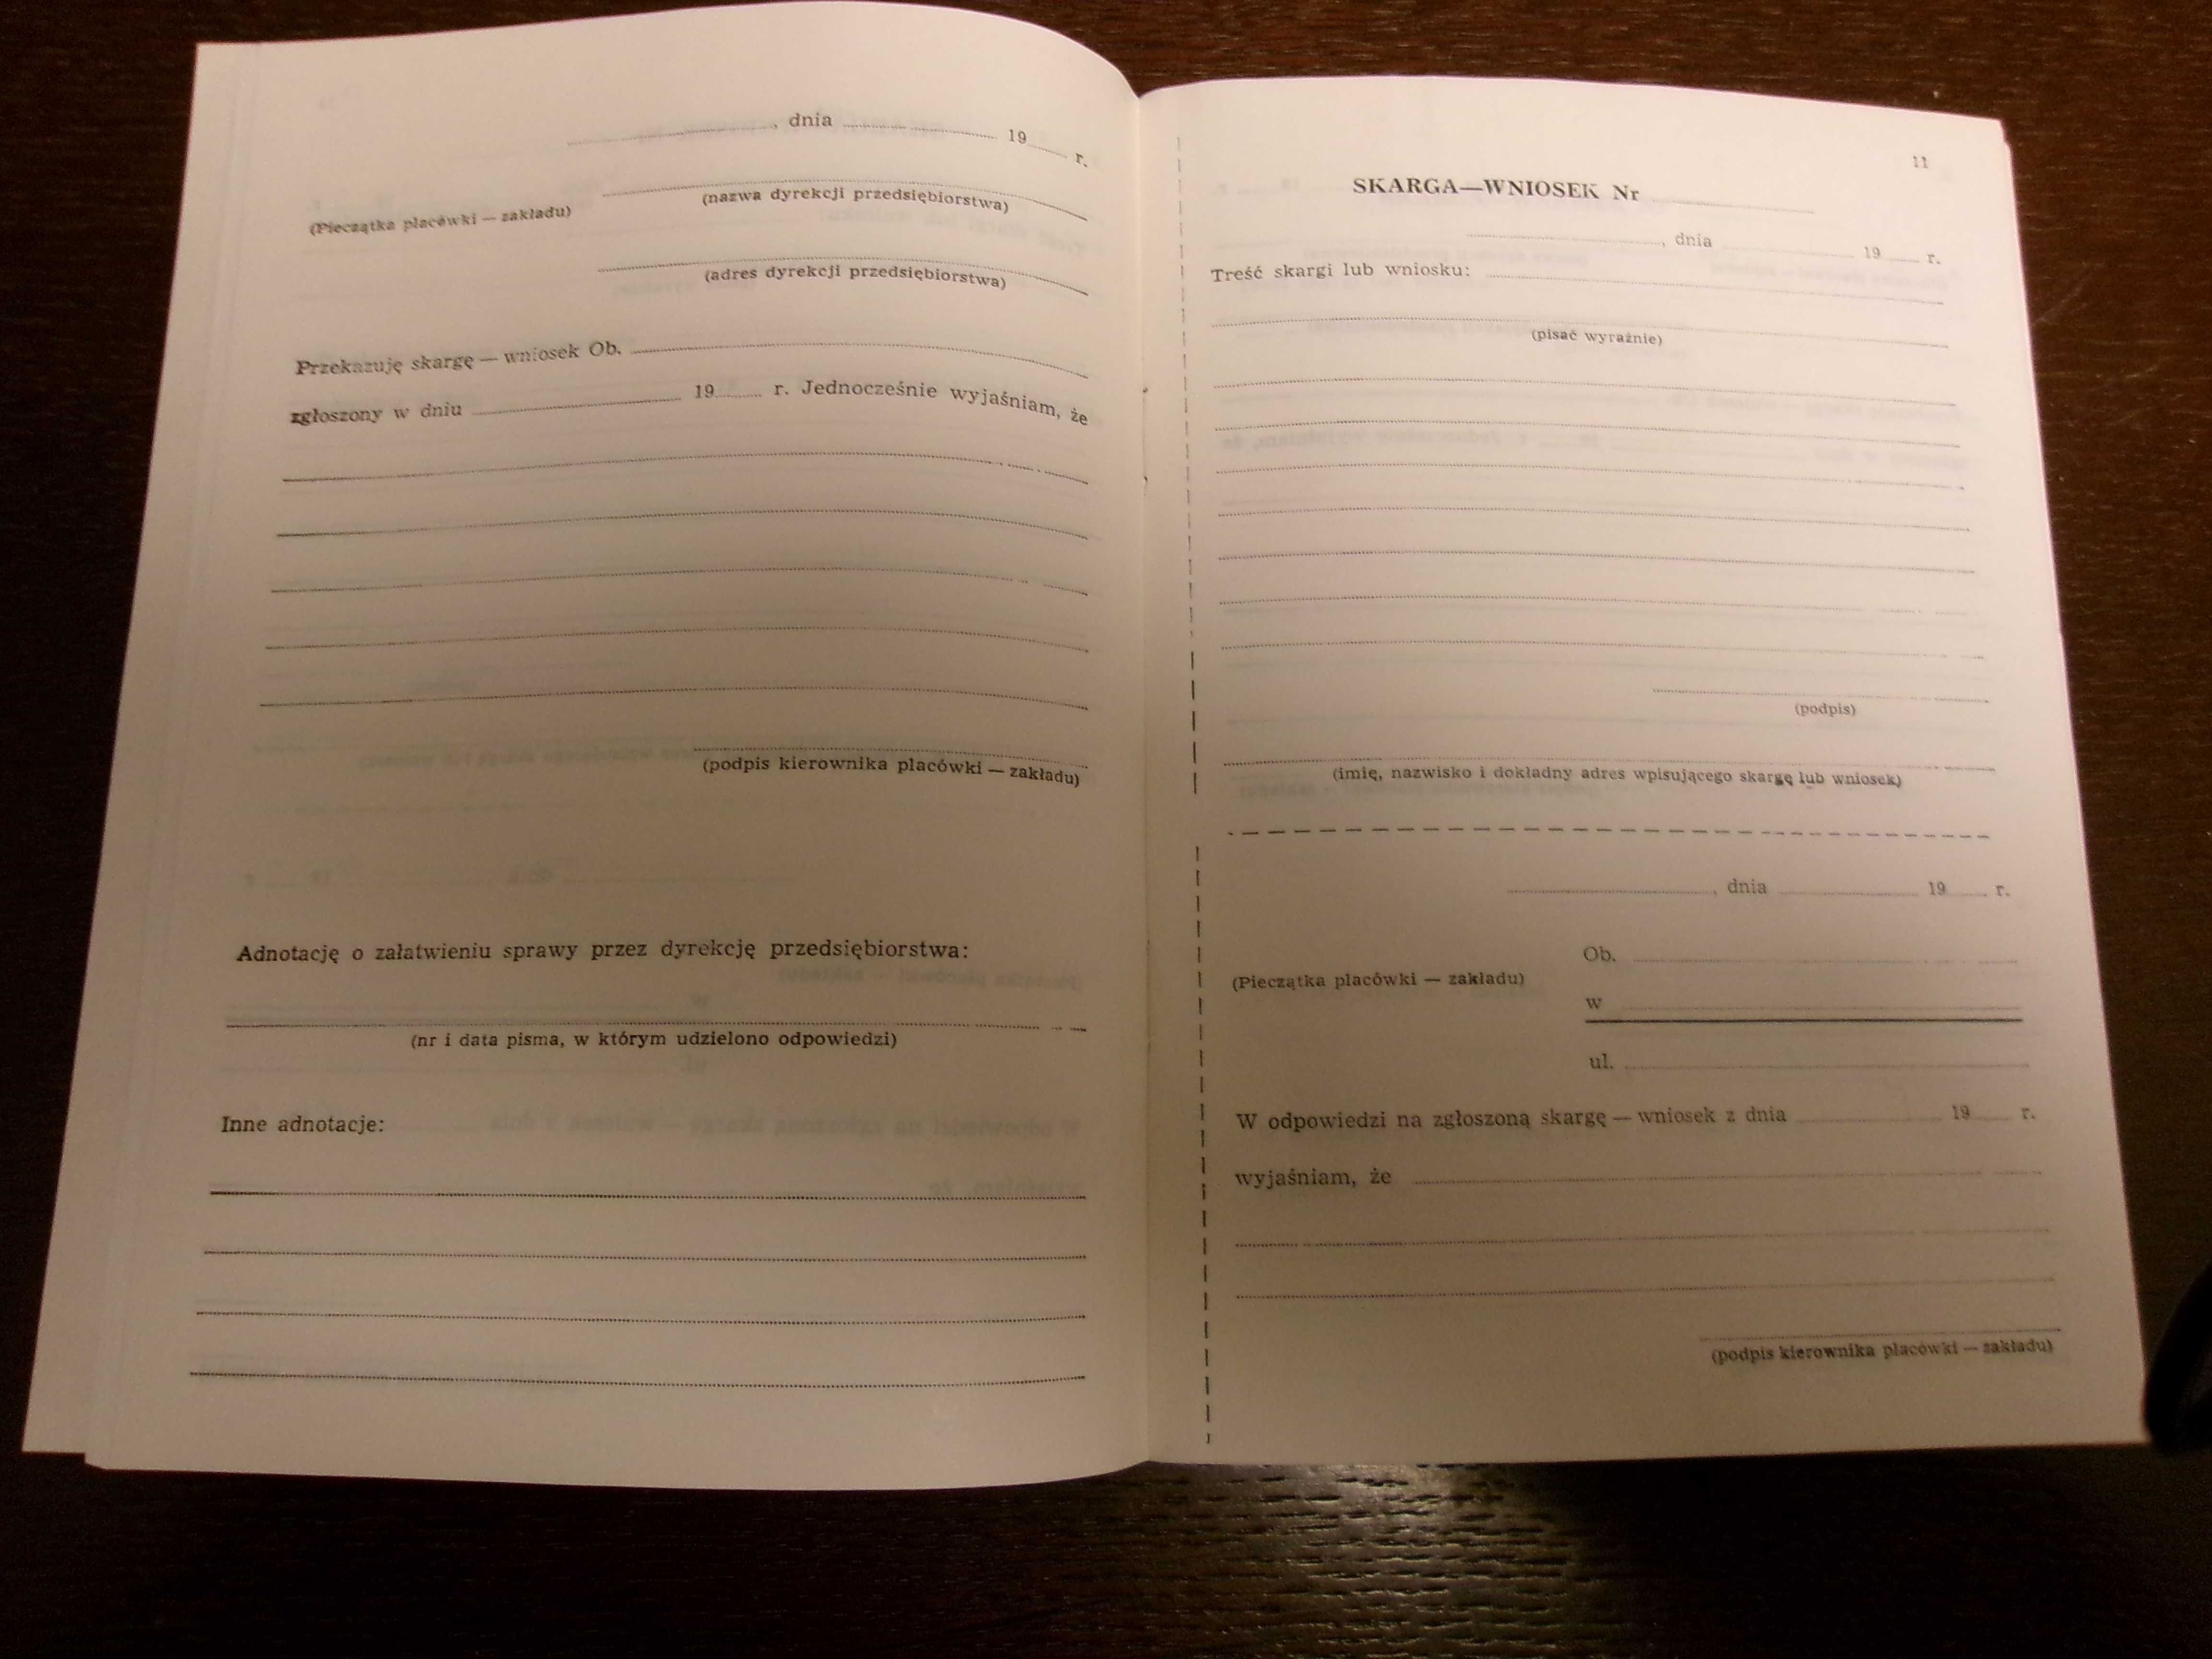 , dnia 19 r.
(nazwa dyrekcji przedsiębiorstwa)
(Pieczątka placówki — zakładu)
(adres dyrekcji przedsiębiorstwa)
Przekazuję skargę — wniosek Ob.
zgłoszony w dniu 19 r. Jednocześnie wyjaśniam, że
(podpis kierownika placówki — zakładu)
Adnotację o załatwieniu sprawy przez dyrekcję przedsiębiorstwa:
(nr i data pisma, w którym udzielono odpowiedzi)
Inne adnotacje:
11
SKARGA—WNIOSEK Nr
, dnia 19 r.
Treść skargi lub wniosku:
(pisać wyraźnie)
(podpis)
(imię, nazwisko i dokładny adres wpisującego skargę lub wniosek)
, dnia 19 r.
Ob.
(Pieczątka placówki — zakładu)
w
ul.
W odpowiedzi na zgłoszoną skargę — wniosek z dnia 19 r.
wyjaśniam, że
(podpis kierownika placówki — zakładu)